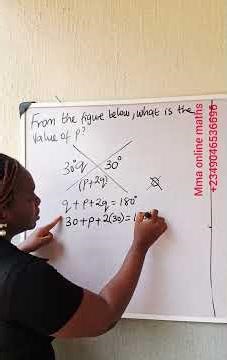 From the figure below, what is the
value of p?
30° q 30°
(p+2q)
q + p + 2q = 180°
30 + p + 2(30) = 1
Mma online maths
+2349046536696